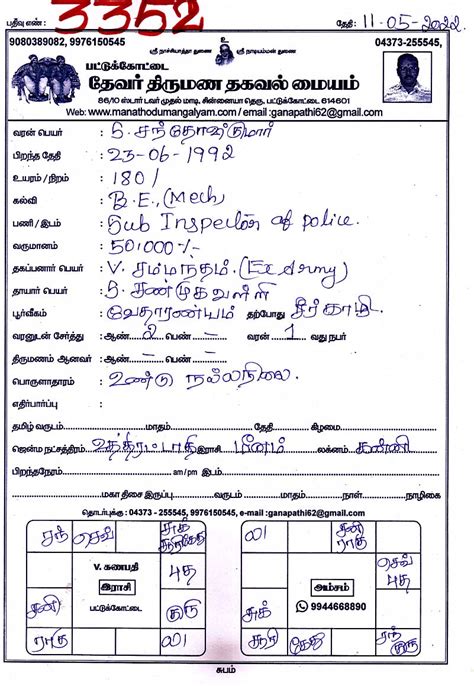 பதிவு எண் : 3352 தேதி: 11-05-2022.
9080389082, 9976150545 உ 04373-255545,
ஸ்ரீ நாச்சியாத்தா துணை ஸ்ரீ நாடியம்மன் துணை
பட்டுக்கோட்டை
தேவர் திருமண தகவல் மையம்
86/10 ஸ்டார் டவர் முதல் மாடி, சின்னையா தெரு, பட்டுக்கோட்டை 614601
Web: www.manathodumangalyam.com / email :ganapathi62@gmail.com
வரன் பெயர் : S. சந்தோஷ்குமார்
பிறந்த தேதி : 23-06-1992
உயரம் / நிறம் : 180/
கல்வி : B.E,(Mech)
பணி / இடம் : Sub Inspector of police.
வருமானம் : 50,000/-
தகப்பனார் பெயர் : V. சம்மந்தம். (Ex Army)
தாயார் பெயர் : S. சண்முகவள்ளி
பூர்வீகம் : வேதாரண்யம் தற்போது சீர்காழி.
வரனுடன் சேர்த்து : ஆண் 2 பெண் - வரன் 1 வது நபர்
திருமணம் ஆனவர் : ஆண் - பெண் -
பொருளாதாரம் : உண்டு நல்லநிலை.
எதிர்பார்ப்பு :
தமிழ் வருடம் மாதம் தேதி கிழமை
ஜென்ம நட்சத்திரம் உத்திரட்டாதி இராசி மீனம் லக்னம் கன்னி
பிறந்தநேரம் am/pm இடம்
மகா திசை இருப்பு வருடம் மாதம் நாள் நாழிகை
தொடர்புக்கு : 04373 - 255545, 9976150545, e-mail :ganapathi62@gmail.com
சந் செவ் சுக் சூரி கேது
ல/ சனி ராகு
V. கணபதி
இராசி
பட்டுக்கோட்டை
புத
செவ் புத
அம்சம்
9944668890
சனி குரு
சுக்
ராகு ல/
சூரி கேது சந் குரு
சுபம்